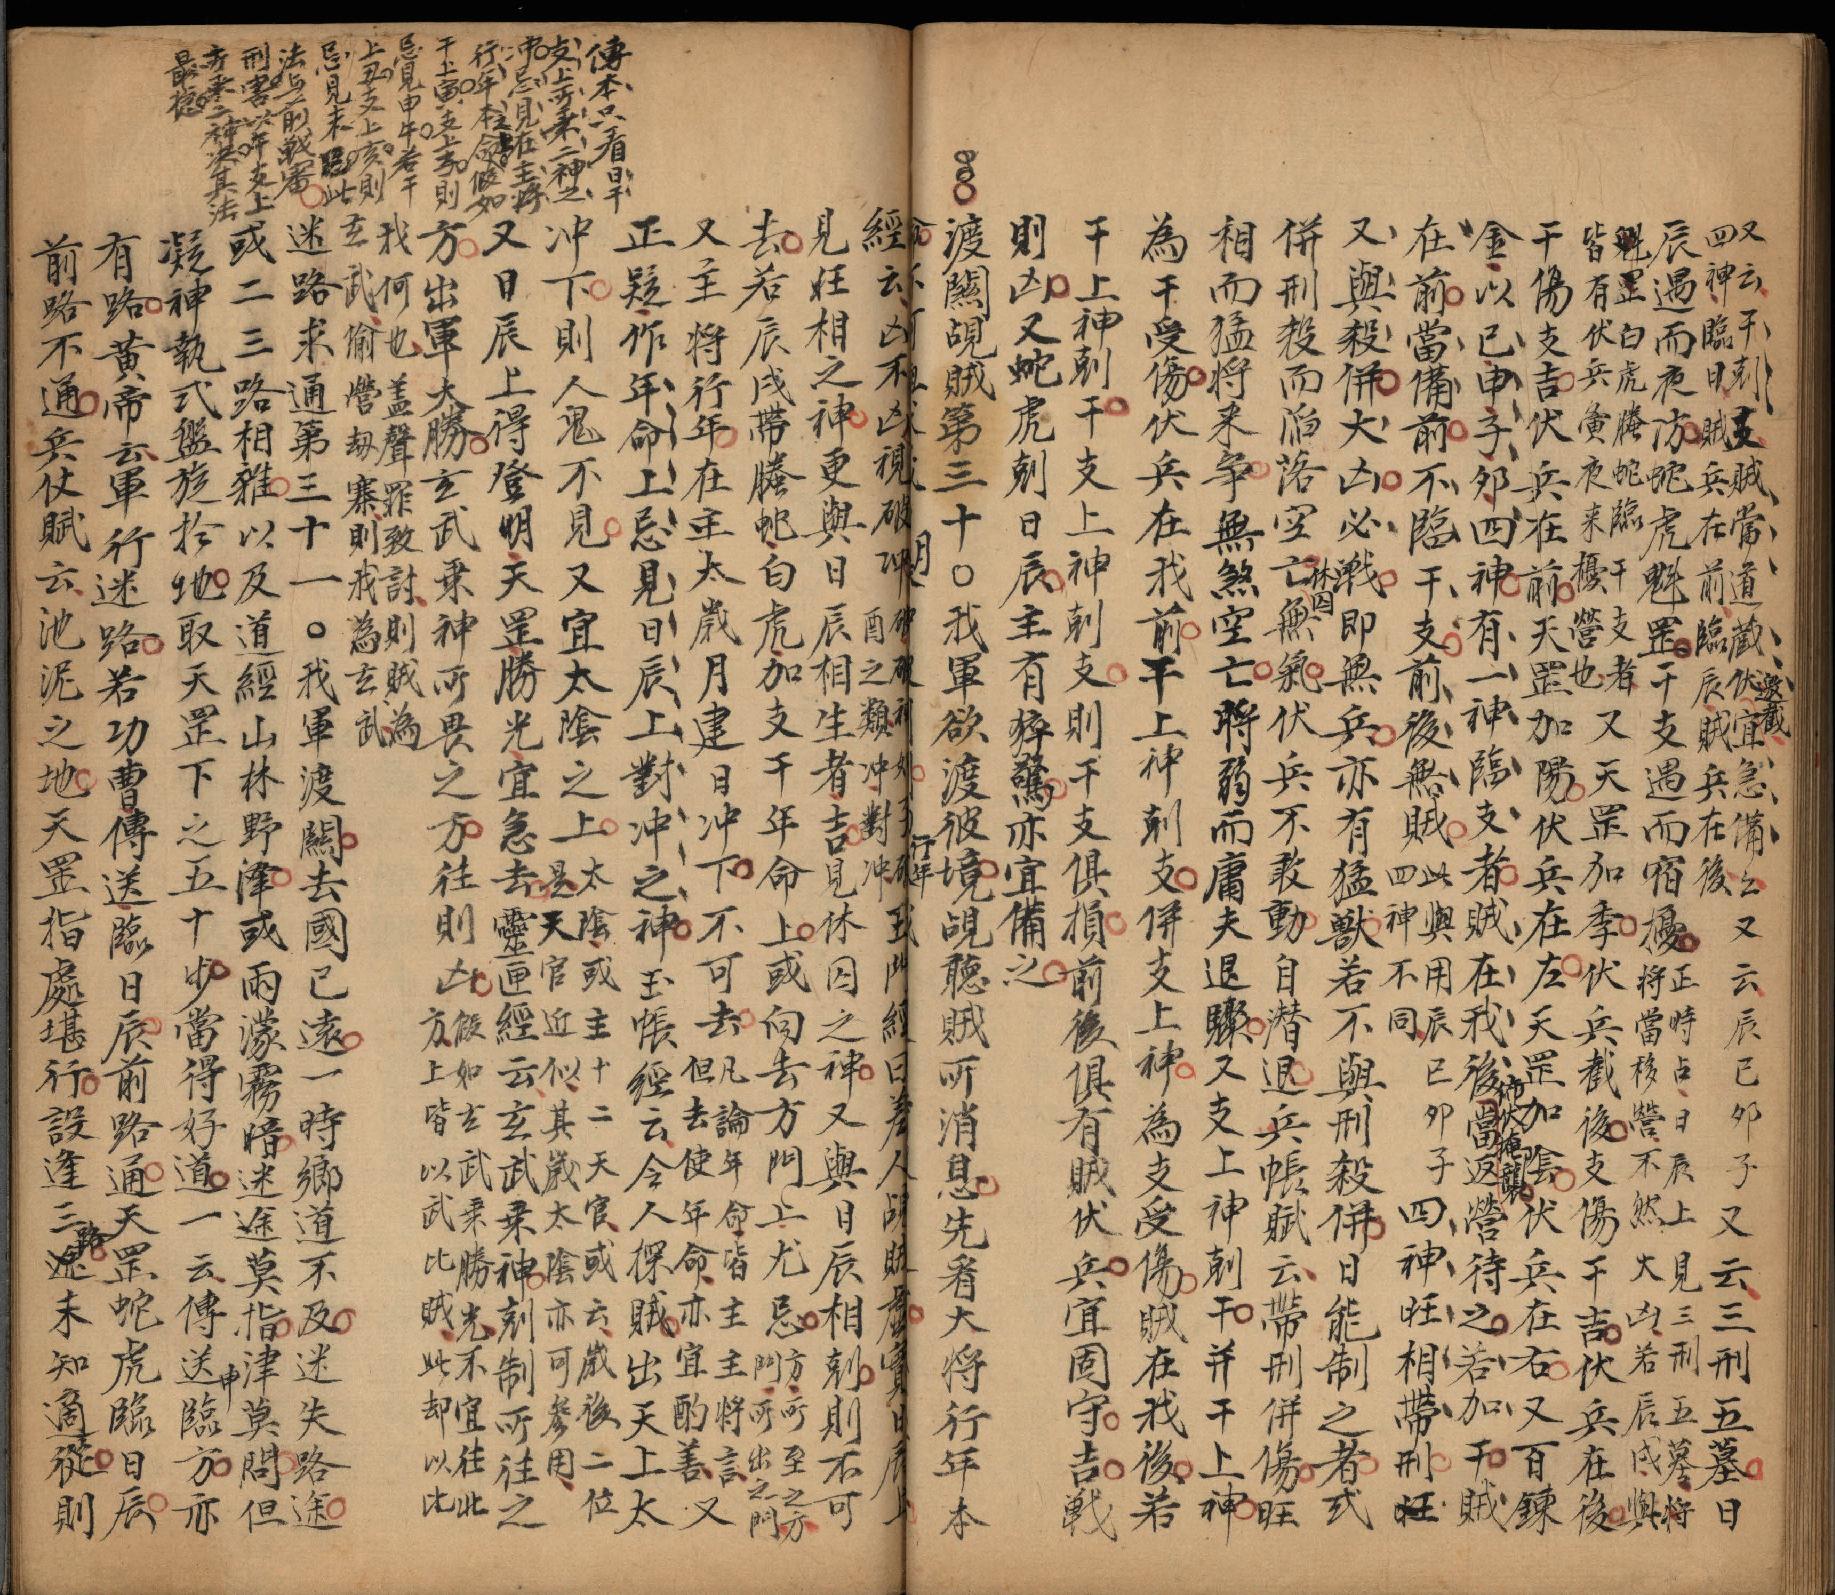 又云干剋支賊當道藏伏宜急備之又云辰巳卯子又云三刑五墓日
邀截
四神臨日賊兵在前臨辰賊兵在後
辰遇而夜防蛇虎魁罡干支遇而宿擾正時占日辰上見三刑五墓將
將當移營不然大凶若辰戌與
魁罡白虎螣蛇臨干支者又天罡加季伏兵截後支傷干吉伏兵在後
皆有伏兵寅夜来擾營也
干傷支吉伏兵在前天罡加陽伏兵在左天罡加陰伏兵在右又百鍊
金以巳申子卯四神有一神臨支者賊在我後當返營待之若加干賊
在前當備前不臨干支前後無賊此與用辰巳卯子四神旺相帶刑旺
四神不同
又與殺併大凶必戰即無兵亦有猛獸若不與刑殺併日能制之者或
併刑殺而陷落空亡無氣伏兵不敢動自潛退兵帳賦云帶刑併傷旺
休囚
相而猛将来爭無煞空亡將弱而庸夫退驟又支上神剋干并干上神
為干受傷伏兵在我前干上神剋支併支上神為支受傷賊在我後若
干上神剋干支上神剋支則干支俱損前後俱有賊伏兵宜固守吉戦
則凶又蛇虎剋日辰主有猝驚亦宜備之
渡關覘賊第三十○我軍欲渡彼境覘聽賊所消息先看大将行年本
經云凶不凶視破冲
酉之類冲對冲
見旺相之神更與日辰相生者吉見休囚之神又與日辰相剋則不可
去若辰戌帶螣蛇白虎加支干年命上或向去方門上尤忌方所至之方
門所出之門
又主将行年在主太歲月建日冲下不可去凡論年命皆主主將言又
但去使年命亦宜酌善
正疑作年命上忌見日辰上對冲之神玉帳經云令人探賊出天上太
冲下則人鬼不見又宜太陰之上太陰或主十二天官或云歲後二位
是天官近似其歲太陰亦可參用
又日辰上得登明天罡勝光宜急去靈匣經云玄武乗神剋制所往之
方出軍大勝玄武乗神所畏之方往則凶假如玄武乗勝光不宜往此
方上皆以武比賊此却以比
我何也蓋聲罪致討則賊為
玄武偷營劫寨則我為玄武
迷路求通第三十一○我軍渡關去國已遠一時鄉道不及迷失路途
或二三路相雜以及道經山林野澤或雨濛霧暗迷途莫指津莫問但
凝神執式盤旋扵地取天罡下之五十步當得好道一云傳送臨方亦
申
有路黄帝云軍行迷路若功曹傳送臨日辰前路通天罡蛇虎臨日辰
前路不通兵仗賦云池泥之地天罡指處堪行設逢三途未知適從則
路
傳本只看日干
支上所乗二神之
冲忌見在主将
行年本命假如
干上寅支上亥則
忌見申午若干
上丑支上亥則
忌見未
此
法与前戦審
刑害以年支上
所乗二神决其法
最穏